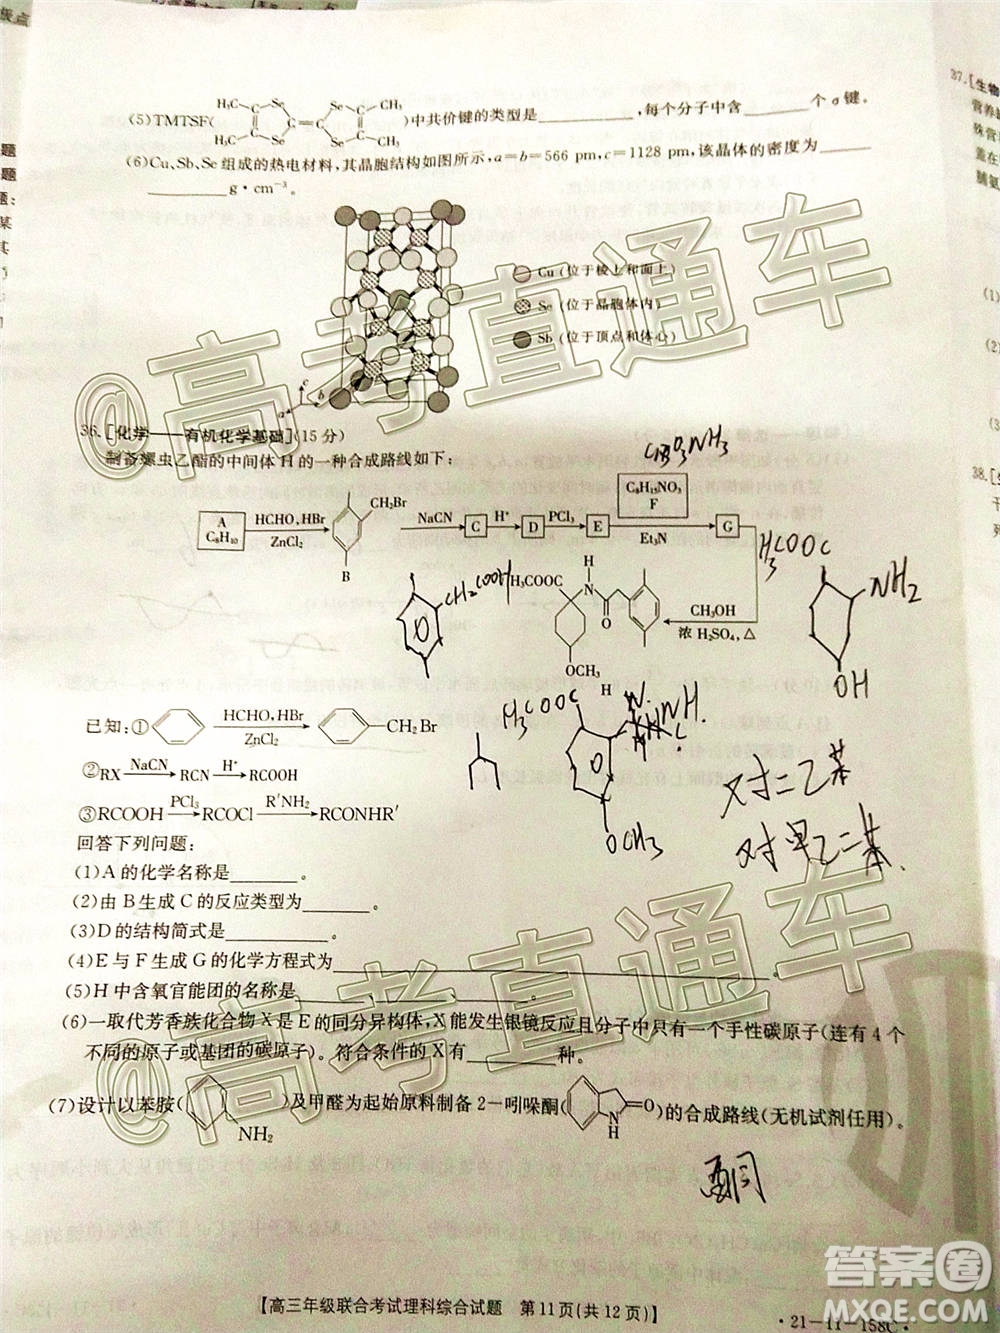 (5)TMTSF( H₃C Se Se CH₃ C=C H₃C Se Se CH₃ )中共价键的类型是________,每个分子中含________个 σ 键。
(6)Cu、Sb、Se 组成的热电材料,其晶胞结构如图所示,a=b=566 pm,c=1128 pm,该晶体的密度为________
________g·cm⁻³。
Cu (位于棱上和面上)
Se (位于晶胞体内)
Sb (位于顶点和体心)
c
b
a
36.[化学——有机化学基础](15 分)
制备螺虫乙酯的中间体 H 的一种合成路线如下:
A C₈H₁₀ HCHO,HBr ZnCl₂ CH₂Br B NaCN C H⁺ D PCl₃ E C₈H₁₅NO₃ F Et₃N G
CH₂COOH
H₃COOC H N O OCH₃ H CH₃OH 浓 H₂SO₄,△
H₃COOC NH₂ OH
H₃COOC OCH₃
对二乙苯
对甲乙二苯
已知:① HCHO,HBr ZnCl₂ CH₂Br
②RX NaCN RCN H⁺ RCOOH
③RCOOH PCl₃ RCOCl R′NH₂ RCONHR′
回答下列问题:
(1)A 的化学名称是________。
(2)由 B 生成 C 的反应类型为________。
(3)D 的结构简式是________。
(4)E 与 F 生成 G 的化学方程式为________。
(5)H 中含氧官能团的名称是________。
(6)一取代芳香族化合物 X 是 E 的同分异构体,X 能发生银镜反应且分子中只有一个手性碳原子(连有 4 个
不同的原子或基团的碳原子)。符合条件的 X 有________种。
(7)设计以苯胺( NH₂ )及甲醛为起始原料制备 2-吲哚酮( N H O )的合成路线(无机试剂任用)。
酮
【高三年级联合考试理科综合试题 第 11 页(共 12 页)】
·21-11-158C·
@高考直通车
@高考直通车
答案圈
MXQE.COM
37.[生物
营养
38.[生